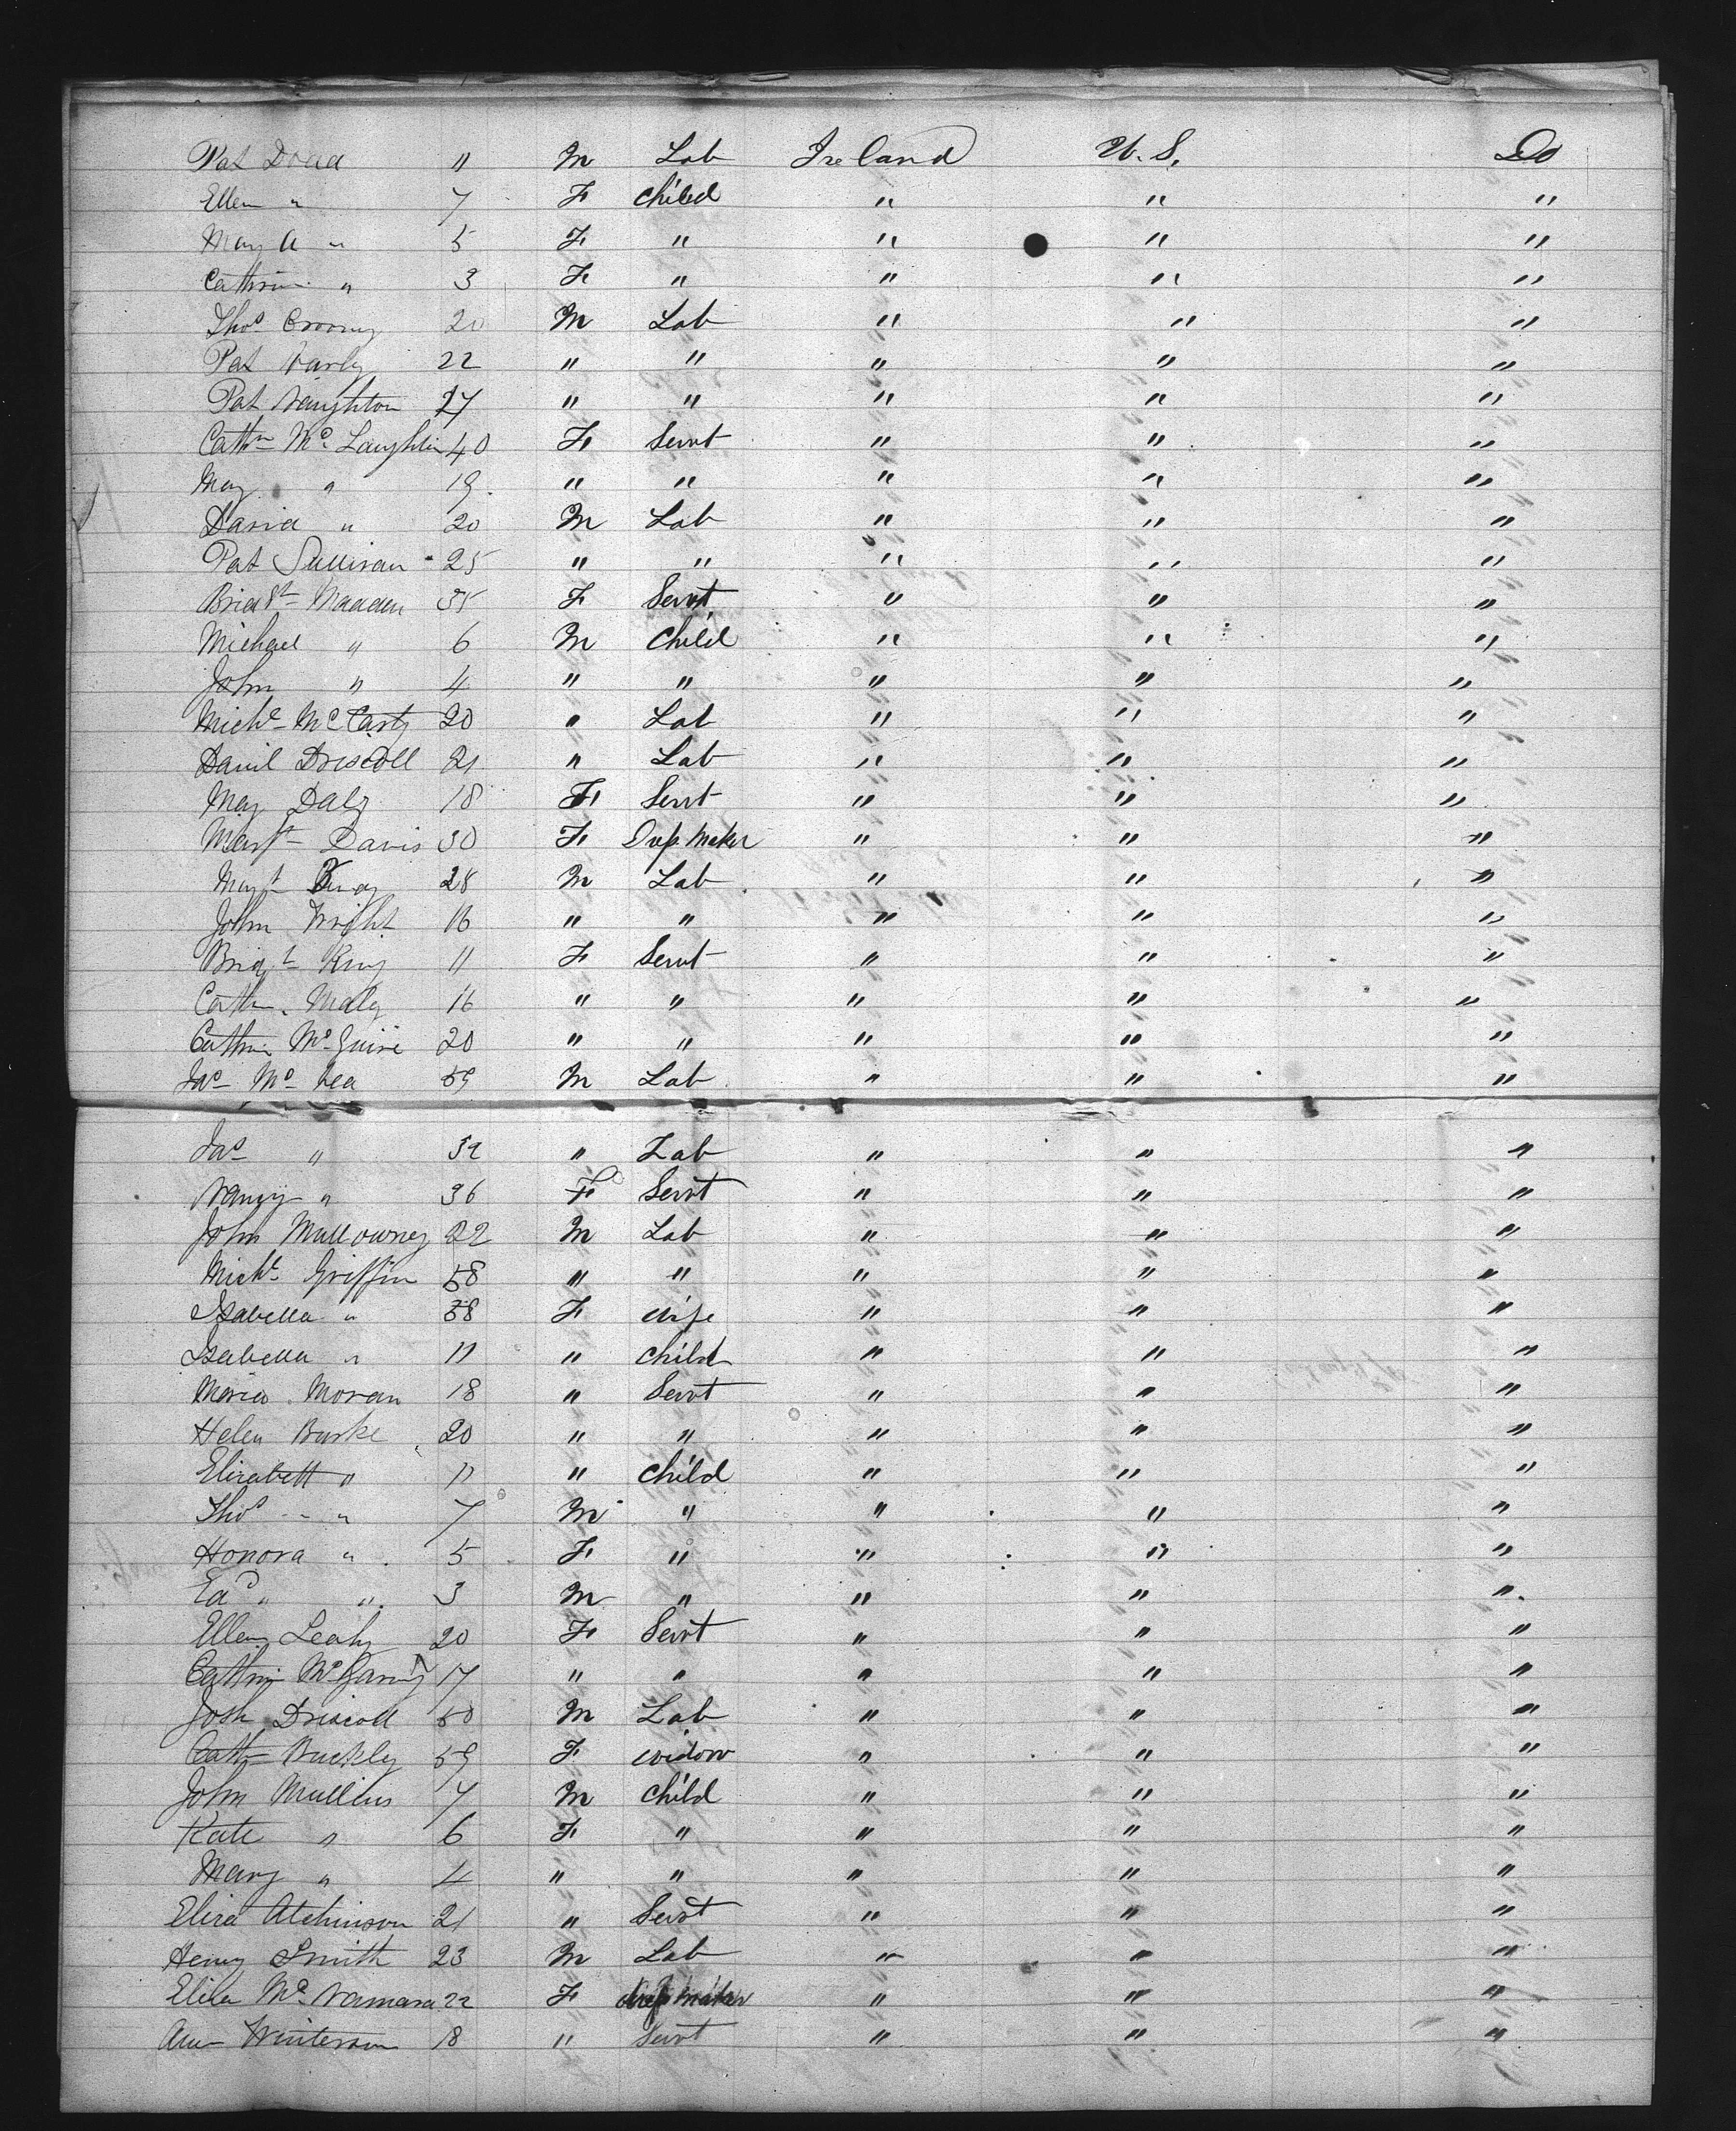 Pat Dowd " M Lab Ireland U.S. Do
Ellen " 7 F Child " " "
May A " 5 F " " " "
Cathrin " 3 F " " " "
Thos 20 M Lab " " "
Pat 22 " " " " "
Pat Naughton 27 " " " " "
Cathn McLaughlin 40 F Servt " " "
May " 19 " " " " "
David " 20 M Lab " " "
Pat Sullivan 25 " " " " "
Bridgt Madden 35 F Servt " " "
Michael " 6 M Child " " "
John " 4 " " " " "
Michl McCarty 20 " Lab " " "
Danil Driscoll 21 " Lab " " "
May Daly 18 F Servt " " "
Margt Davis 30 F Drs Maker " " "
28 M Lab " " "
John Wright 16 " " " " "
Brigt King 11 F Servt " " "
Cathn Maly 16 " " " " "
Cathrin McGuire 20 " " " " "
Jas Mc 59 M Lab " " "
Jas " 39 " Lab " " "
Nancy " 36 F Servt " " "
John Mullowney 22 M Lab " " "
Michl Griffin 58 " " " " "
Isabella " 58 F Wife " " "
Isabella " 11 " Child " " "
Maria Moran 18 " Servt " " "
Helen Burke 20 " " " " "
Elizabeth " 11 " Child " " "
Thos " 7 M " " " "
Honora " 5 F " " " "
Edd " 3 M " " " "
Ellen Leahy 20 F Servt " " "
Cathrin 17 " " " " "
Josh Driscoll 50 M Lab " " "
Cathn Buckley 59 F Widow " " "
John Mullins 7 M Child " " "
Kate " 6 F " " " "
Mary " 4 " " " " "
Eliza Atchinson 21 " Servt " " "
Henry Smith 23 M Lab " " "
Eliza McNamara 22 F Drs Maker " " "
Ann Winterson 18 " Servt " " "